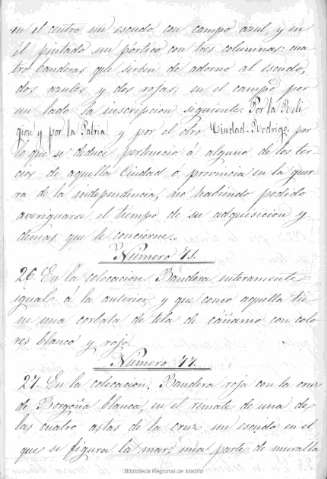 en el centro un escudo con campo azul, y en
él pintado un pórtico con tres columnas: cua
tro banderas que sirven de adorno al escudo,
dos azules, y dos rojas; en el campo por
un lado la inscripcion siguiente: Por la Reli
gion y por la Patria y por el otro Ciudad-Rodrigo, por
lo que se deduce perteneció á alguno de los ter
cios de aquella Ciudad ó provincia en la guer
ra de la independencia, no habiendo podido
averiguarse el tiempo de su adquisicion y
demas que le concierne.
Número 71.
26. En la colocacion, Bandera enteramente
igual á la anterior, y que como aquella tie
ne una corbata de tela de cáñamo con colo
res blanco y rojo.
Número 77.
27. En la colocacion, Bandera roja con la cruz
de Borgoña blanca, en el remate de una de
las cuatro astas de la cruz un escudo en el
que se figura la mar, una parte de muralla
Biblioteca Regional de Madrid